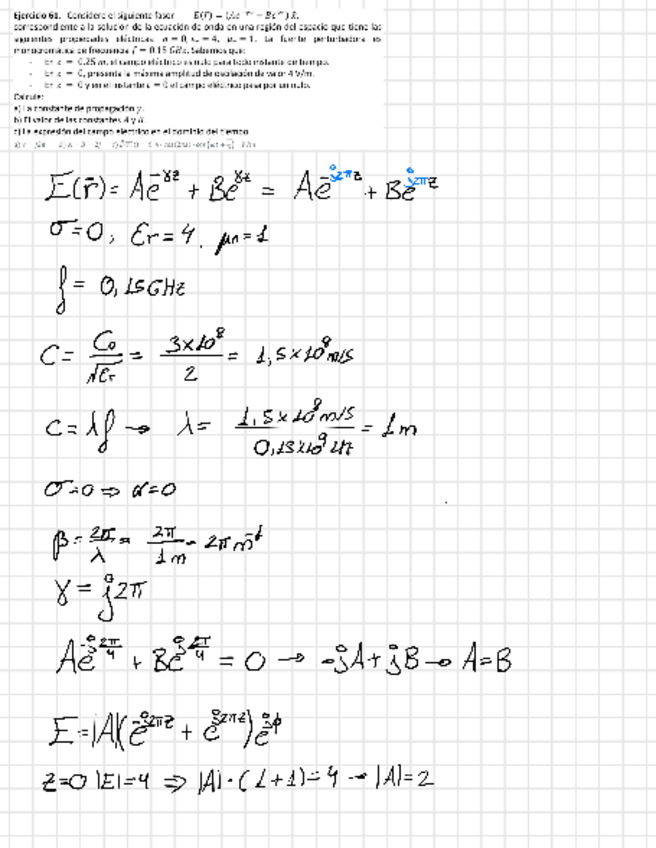 Ejercicio 61. Considere el siguiente fasor E(r̄) = (Ae^-γz + Be^γz) x̂,
correspondiente a la solución de la ecuación de onda en una región del espacio que tiene las
siguientes propiedades eléctricas: σ = 0, εr = 4, μr = 1. La fuente perturbadora es
monocromática de frecuencia f = 0.15 GHz. Sabemos que:
- En z = 0.25 m, el campo eléctrico es nulo para todo instante de tiempo.
- En z = 0, presenta la máxima amplitud de oscilación de valor 4 V/m.
- En z = 0 y en el instante t = 0 el campo eléctrico pasa por un nulo.
Calcule:
a) La constante de propagación γ.
b) El valor de las constantes A y B.
c) La expresión del campo eléctrico en el dominio del tiempo
E(r̄) = Ae^-γz + Be^γz = Ae^-j2πz + Be^j2πz
σ=0, Er=4, μr=1
f = 0,15GHz
C = Co/√Er = 3x10^8/2 = 1,5x10^8 m/s
C = λf → λ = 1,5x10^8 m/s / 0,15x10^9 Hz = 1m
σ=0 ⇒ α=0
β = 2π/λ = 2π/1m = 2π m^-1
γ = j2π
Ae^-j2π/4 + Be^j2π/4 = 0 → -jA+jB → A=B
E = |A|(e^-j2πz + e^j2πz)e^jϕ
z=0 |E|=4 ⇒ |A|·(1+1)=4 → |A|=2